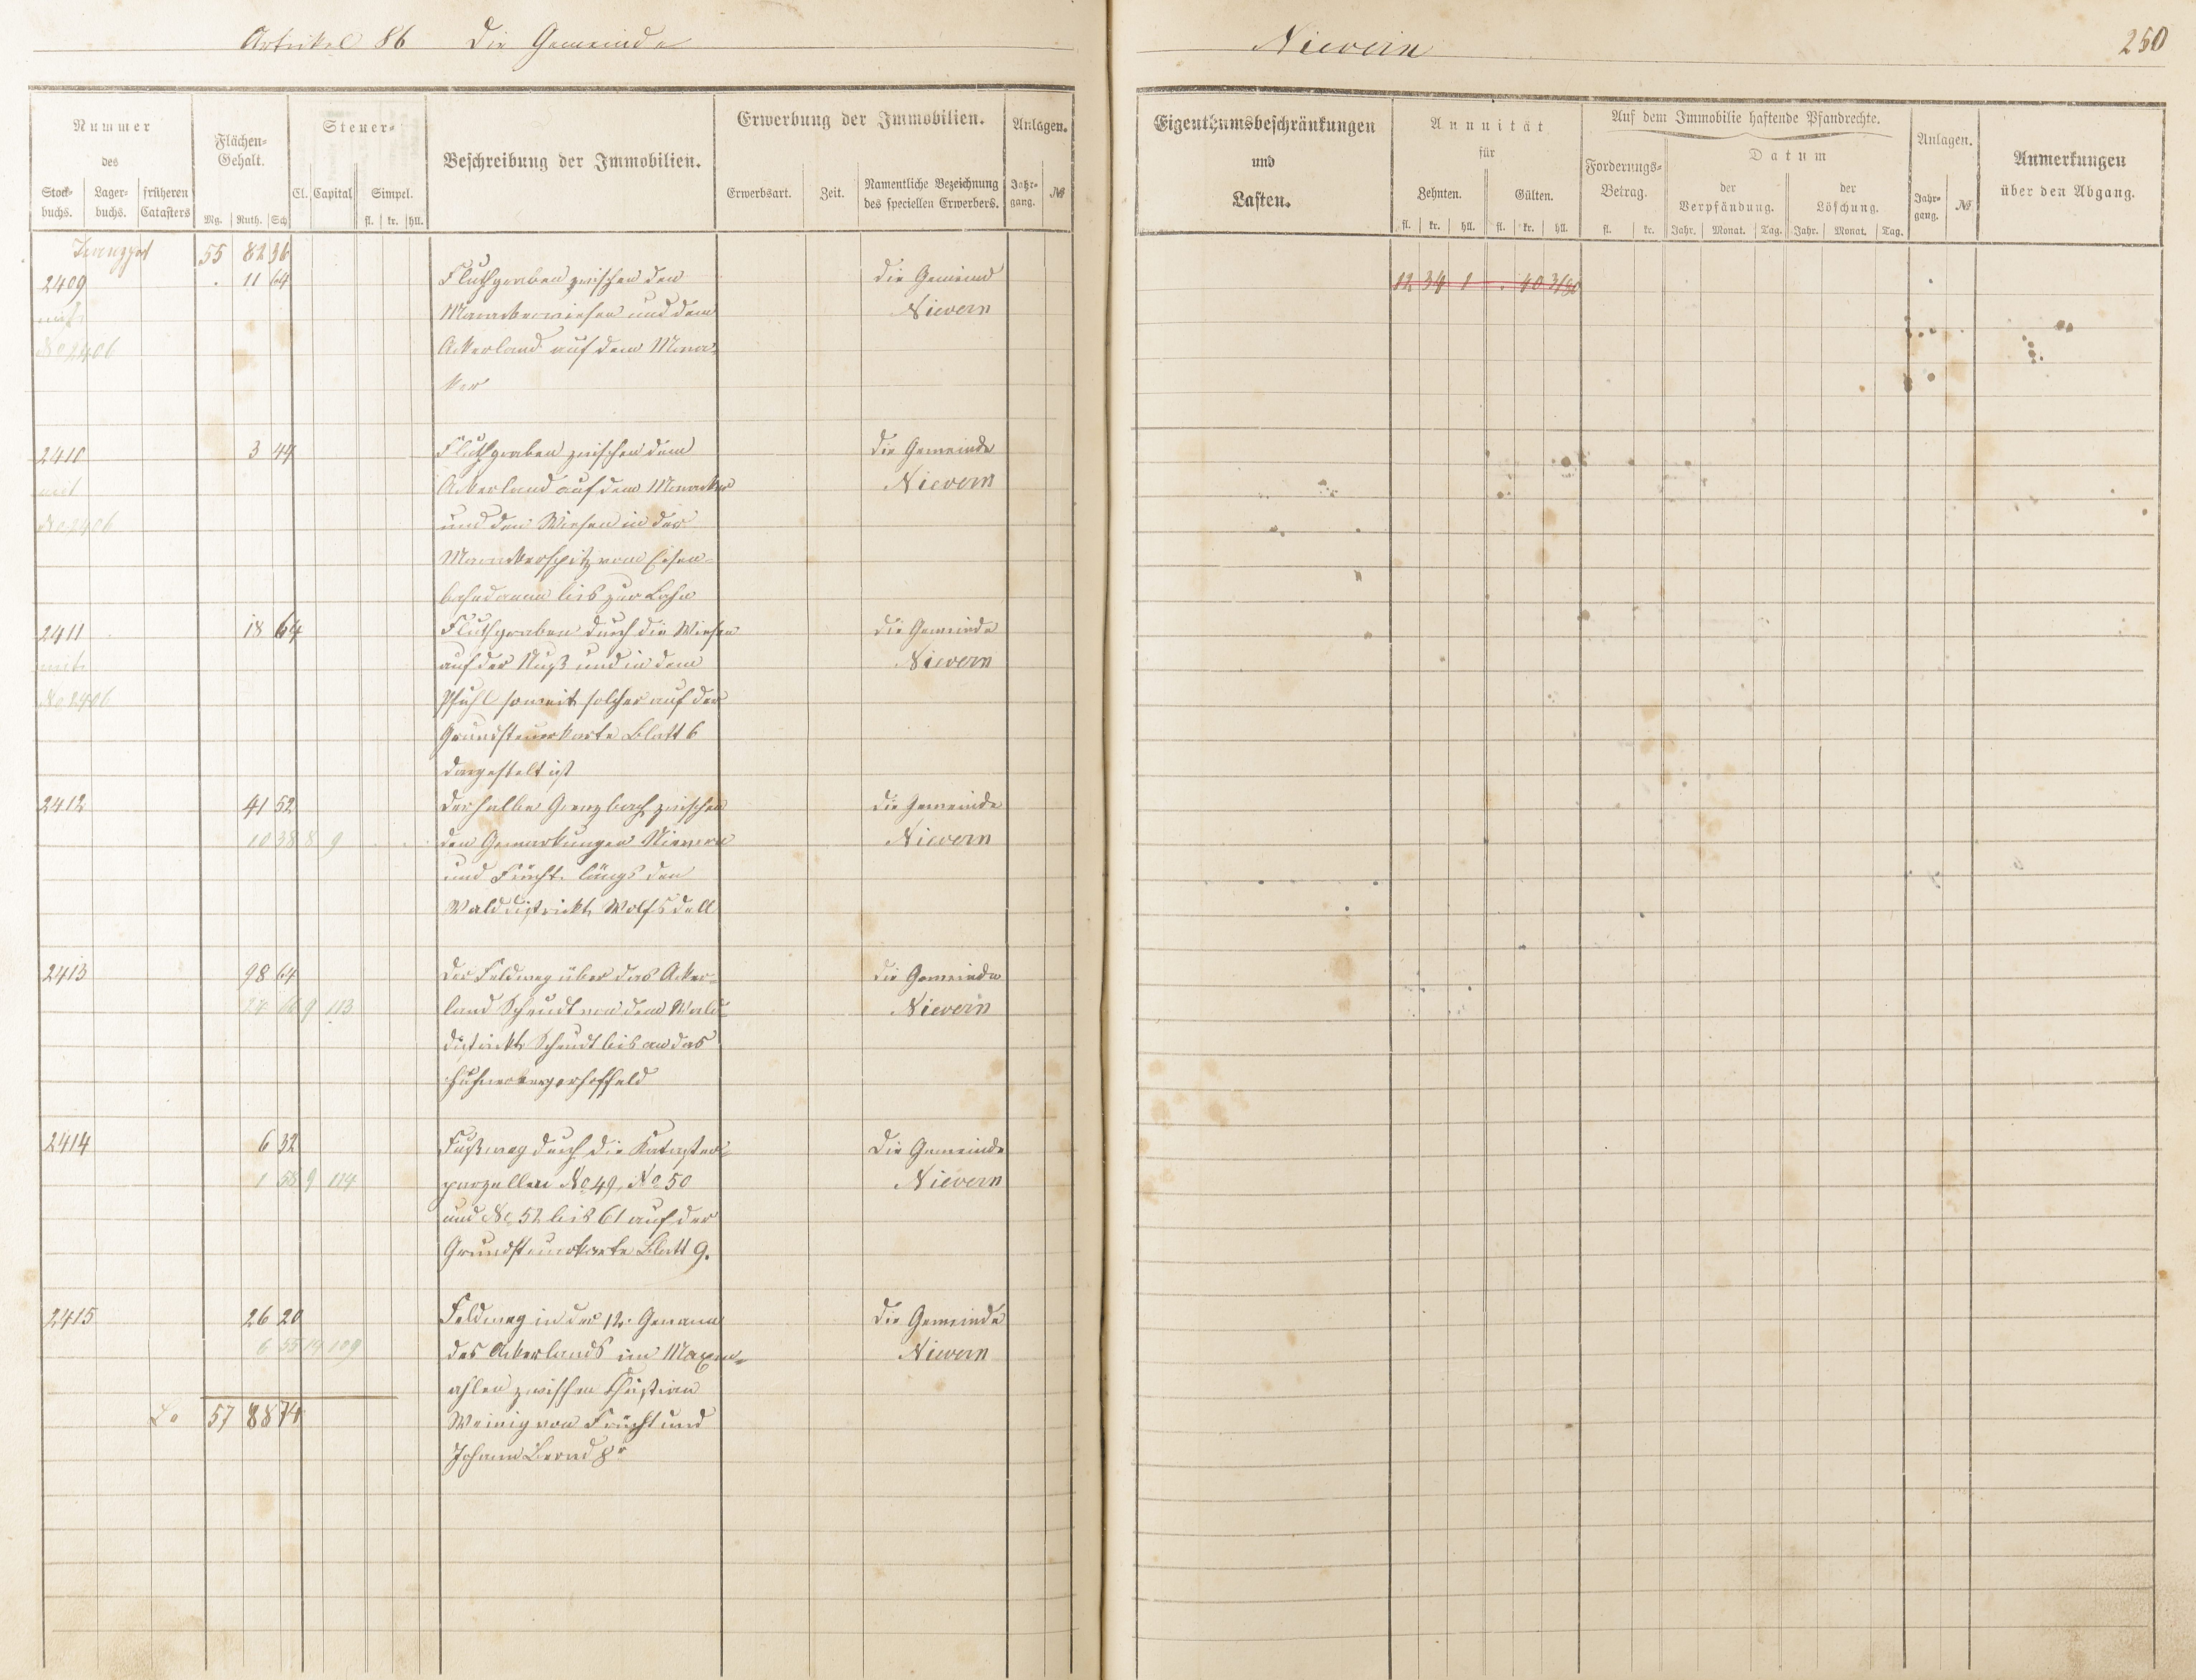 Artikel 86 Die Gemeinde Nievern 250
Nummer
des
Stock-
buchs.
Lager-
buchs.
früheren
Catasters
Flächen-
Gehalt.
Mg. Ruth. Sch
Steuer-
Cl. Capital Simpel.
fl. kr. hll.
Beschreibung der Immobilien.
Erwerbung der Immobilien.
Erwerbsart. Zeit.
Namentliche Bezeichnung
des speciellen Erwerbers.
Anlagen.
Jahr-
gang.
№
Eigenthumsbeschränkungen
und
Lasten.
Annuität
für
Zehnten. Gülten.
fl. kr. hll. fl. kr. hll.
Auf dem Immobilie haftende Pfandrechte.
Forderungs-
Betrag.
fl. kr.
Datum
der
Verpfändung.
der
Löschung.
Jahr. Monat. Tag. Jahr. Monat. Tag.
Anlagen.
Jahr-
gang.
№
Anmerkungen
über den Abgang.
Transport 55 82 36
2409 . 11 64 Fluthgraben zwischen den die Gemeind 12 34 1 . 40
mit Manackerwiesen und dem Nievern
No 2406 Ackerland auf dem Mana-
ker
2410 3 44 Fluthgraben zwischen dem die Gemeinde
mit Ackerland auf dem Manacker Nievern
No 2406 und den Wiesen in der
Manackerspitz vom Eisen-
bahndamm bis zur Lahn
2411 18 64 Fluthgraben durch die Wiesen die Gemeinde
mit auf der Nuß und in dem Nievern
No 2406 Pfuhl soweit solcher auf der
Grundsteuerkarte Blatt 6
dargestelt ist
2412 41 52 Der halbe Grenzbach zwischen die Gemeinde
10 38 8 9 den Gemarkungen Nievern Nievern
und Frücht längs den
Walddistrikt Wolfsdell
2413 98 64 Der Feldweg über das Acker- die Gemeinde
24 66 9 113 land Scheudt von dem Wald- Nievern
district Scheudt bis an das
Hühnerbergerhoffeld
2414 6 32 Fußweg durch die Kataster- Die Gemeinde
1 58 9 114 parzellen No 49, No 50 Nievern
und No 52 bis 61 auf der
Grundsteuerkarte Blatt 9.
2415 26 20 Feldweg in der 12. Gewann Die Gemeinde
6 55 14 109 des Ackerlands im Nievern
zwischen Christian
La 57 88 74 Weinig von Frücht und
Johann Bernd 8r